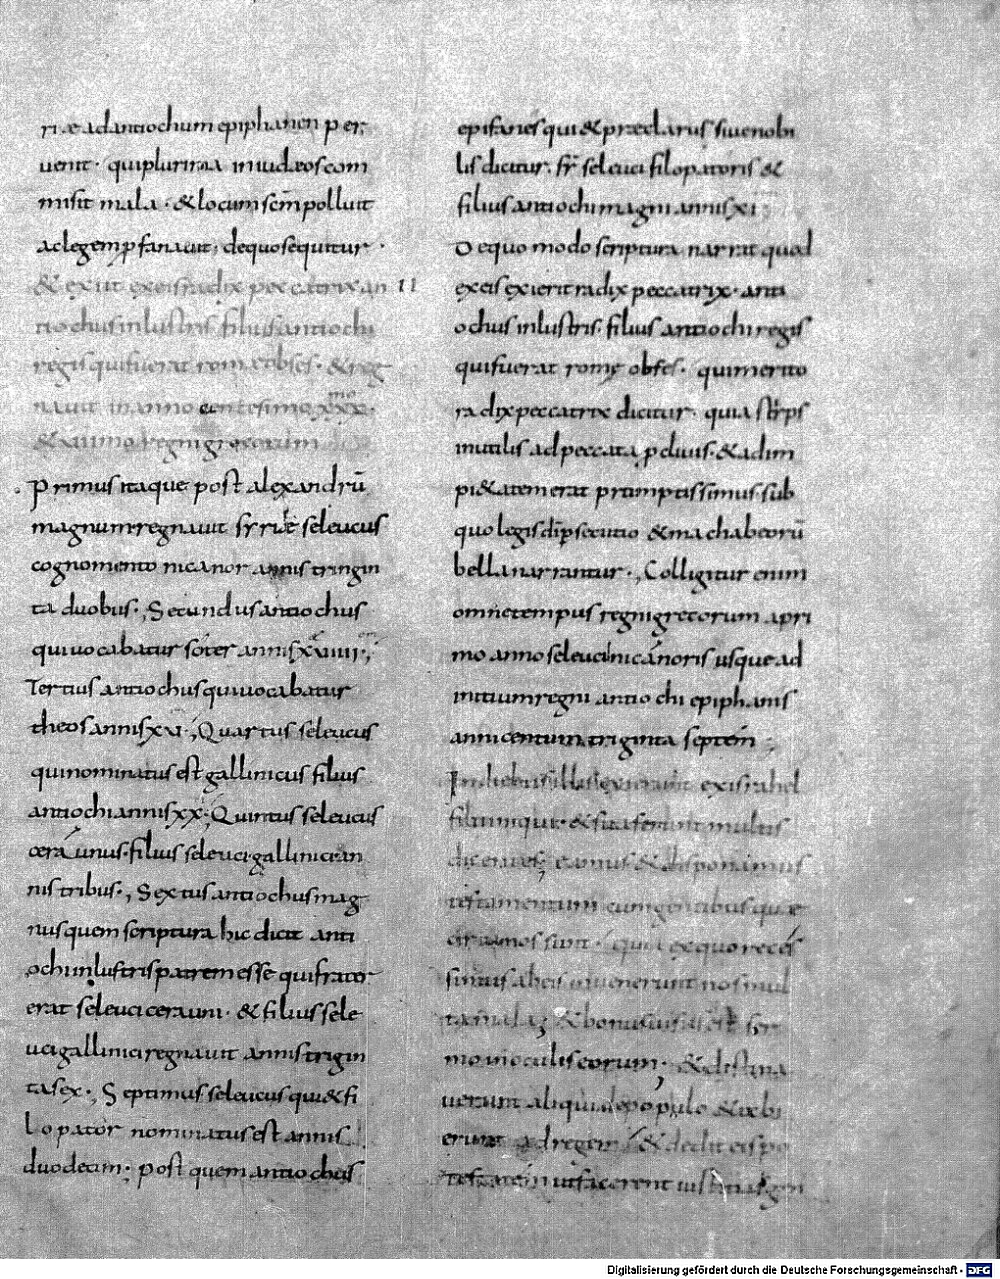 riae ad antiochum epiphanen per
uenit · qui plurima in iudeos com
misit mala · & locum scm̄ polluit
ac legem ꝓfanauit; de quo sequitur ·
& exiit ex eis radix peccatrix an 11
tiochus inlustris filius antiochi
regis qui fuerat rome obses · & reg
nauit in anno centesimo xxx mo
& regni grecorum
Primus itaque post alexandrū
magnum regnauit syriae seleucus
cognomento nicanor annis trigin
ta duobus ·, Secundus antiochus
qui uocabatur soter annis xuiiii ·,
Tertius antiochus qui uocabatur
theos annis xui ·, Quartus seleucus
qui nominatus est gallinicus filius
antiochi annis xx ·, Quintus seleucus
ceraunus · filius seleuci gallinici an
nis tribus ·, Sextus antiochus mag
nus quem scriptura hic dicit anti
ochi inlustris patrem esse qui frater
erat seleuci cerauni · & filius sele
uci gallinici regnauit annis trigin
ta sex ·, Septimus seleucus qui & fi
lopator nominatus est annis
duodecim · post quem antiochus
epifanes qui & praeclarus siue nobi
lis dicitur · fr̄ seleuci filopatoris &
filius antiochi magni annis xi
De quo modo scriptura narrat quod
ex eis exierit radix peccatrix · anti
ochus inlustris · filius antiochi regis
qui fuerat romę obses · qui merito
radix peccatrix dicitur · quia stirps
inutilis ad peccata ꝓcliuis · & ad im
pi&atem erat promptissimus sub
quo legis di ꝑsecutio & machabeorū
bella narrantur ·, Colligitur enim
omne tempus regni grecorum a pri
mo anno seleuci nicanoris usque ad
initium regni antiochi epiphanis
anni centum triginta septem ;
In diebus illis exierunt ex israhel
filii iniqui · & suaserunt multis
dicentes; eamus & disponamus
testamentum cum gentibus quae
circa nos sunt · quia ex quo reces
simus ab eis inuenerunt nos mul
ta mala; & bonus uisus est ser
mo in oculis eorum · & destina
uerunt aliqui de populo & abi
erunt ad regem · & dedit eis po
testatem ut facerent iustitias gen
Digitalisierung gefördert durch die Deutsche Forschungsgemeinschaft - DFG